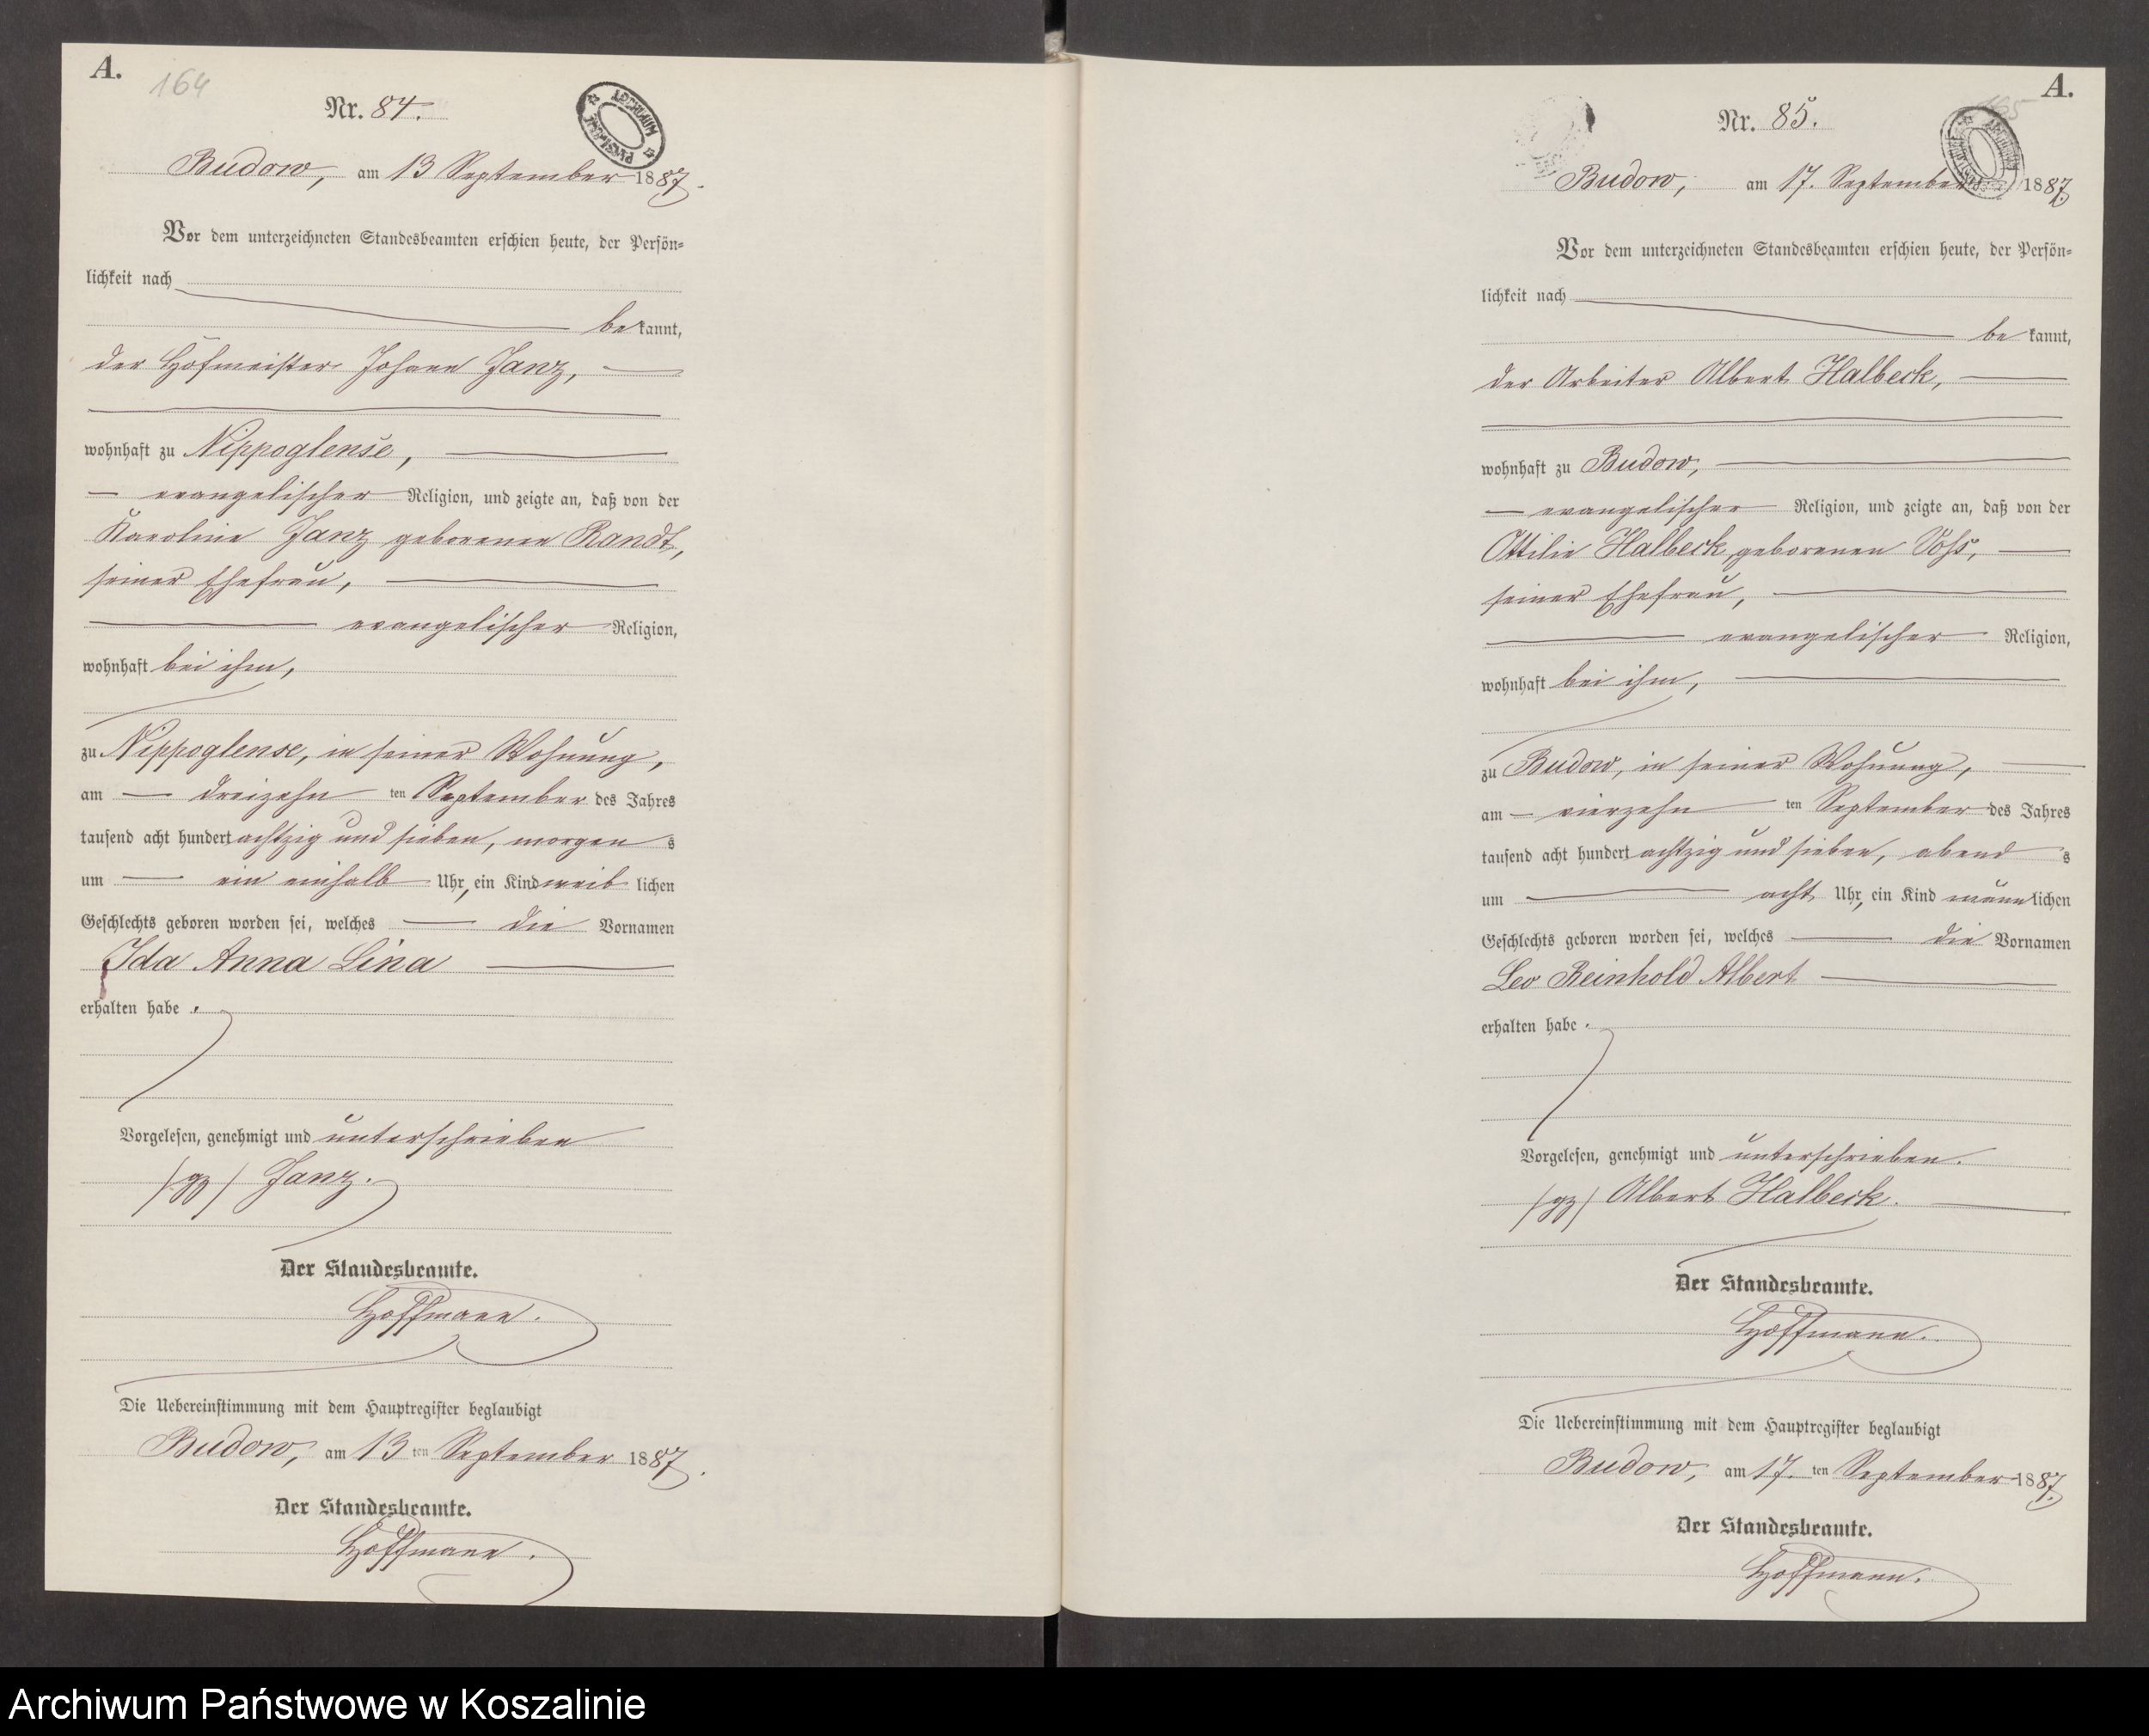 A.
164
Nr. 84.
Budow, am 13 September 1887.
Vor dem unterzeichneten Standesbeamten erschien heute, der Persön-
lichkeit nach
bekannt,
der Hofmeister Johann Janz,
wohnhaft zu Nippoglense,
evangelischer Religion, und zeigte an, daß von der
Karoline Janz geborenen Randt,
seiner Ehefrau,
evangelischer Religion,
wohnhaft bei ihm,
zu Nippoglense, in seiner Wohnung,
am dreizehn ten September des Jahres
tausend acht hundert achtzig und sieben, morgens
um ein einhalb Uhr, ein Kind weiblichen
Geschlechts geboren worden sei, welches die Vornamen
Ida Anna Lina
erhalten habe.
Vorgelesen, genehmigt und unterschrieben
/gz/ Janz.
Der Standesbeamte.
Hoffmann.
Die Uebereinstimmung mit dem Hauptregister beglaubigt
Budow, am 13 ten September 1887.
Der Standesbeamte.
Hoffmann.
A.
Nr. 85.
Budow, am 17. September 1887.
Vor dem unterzeichneten Standesbeamten erschien heute, der Persön-
lichkeit nach
bekannt,
der Arbeiter Albert Halbeck,
wohnhaft zu Budow,
evangelischer Religion, und zeigte an, daß von der
Ottilie Halbeck geborenen Voß,
seiner Ehefrau,
evangelischer Religion,
wohnhaft bei ihm,
zu Budow, in seiner Wohnung,
am vierzehn ten September des Jahres
tausend acht hundert achtzig und sieben, abends
um acht Uhr, ein Kind männlichen
Geschlechts geboren worden sei, welches die Vornamen
Leo Reinhold Albert
erhalten habe.
Vorgelesen, genehmigt und unterschrieben.
/gz/ Albert Halbeck.
Der Standesbeamte.
Hoffmann.
Die Uebereinstimmung mit dem Hauptregister beglaubigt
Budow, am 17. ten September 1887.
Der Standesbeamte.
Hoffmann.
Archiwum Państwowe w Koszalinie